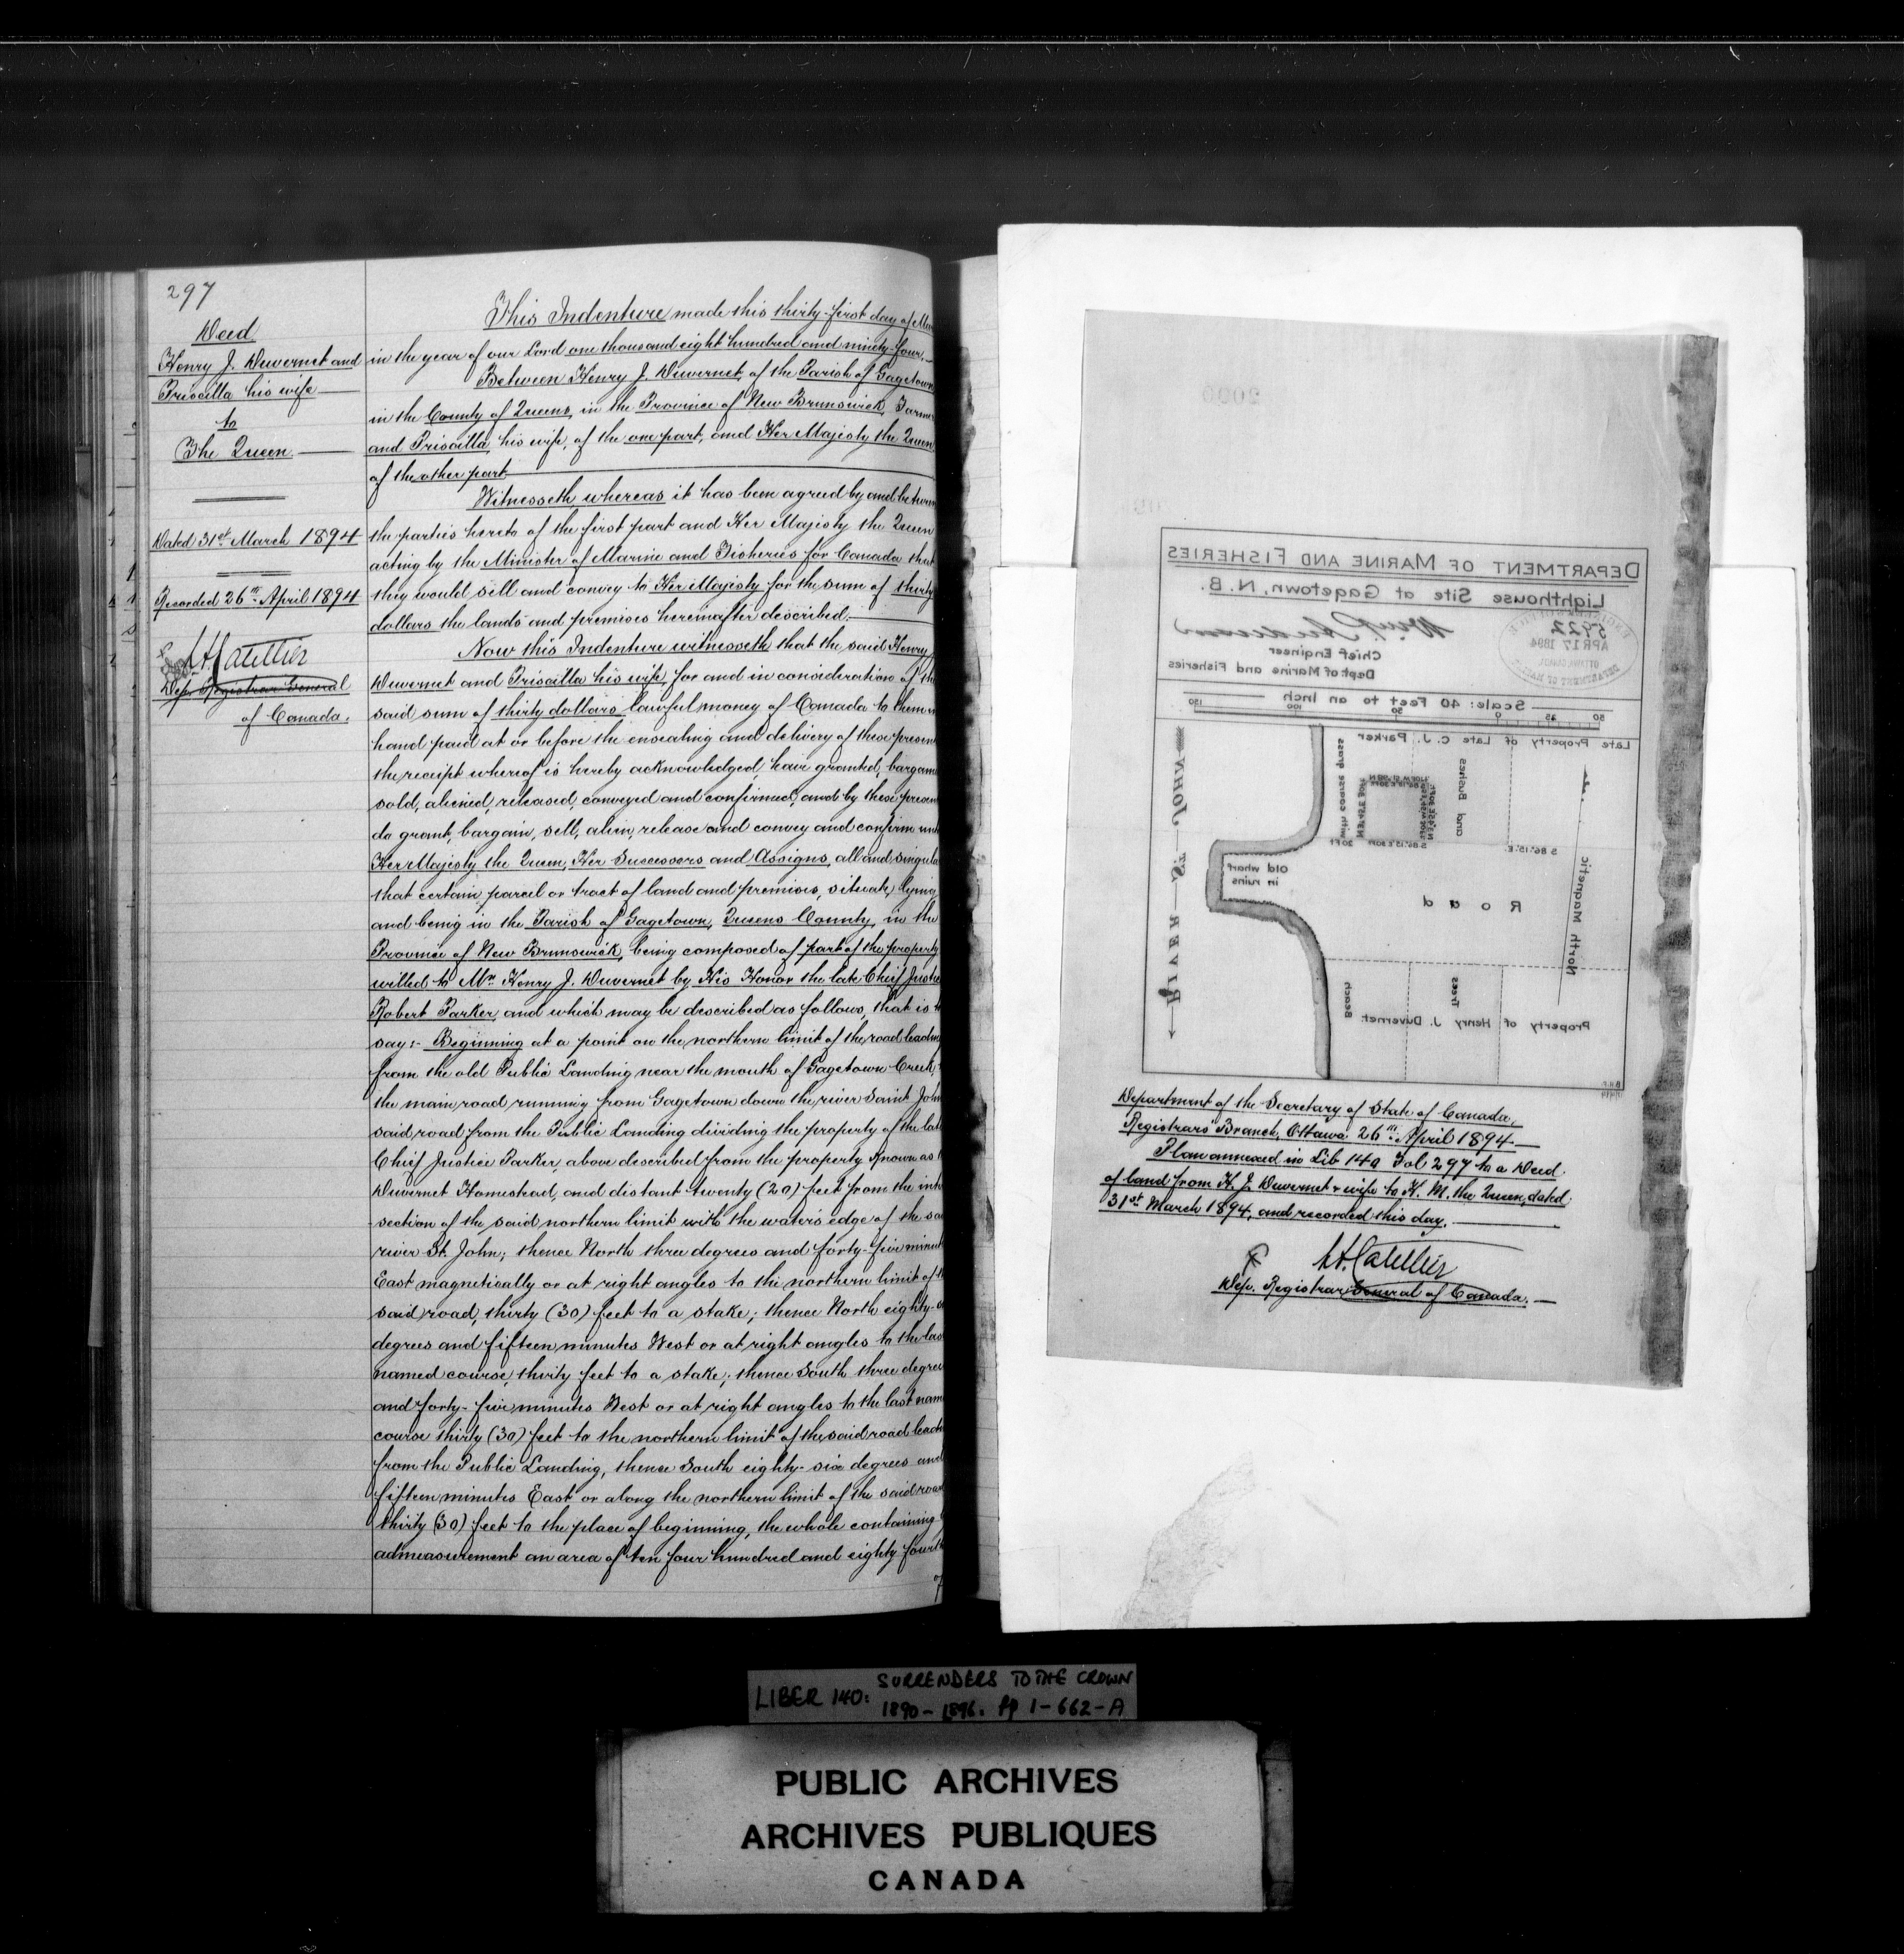 297
Deed
Henry J. Duvernet and
Priscilla his wife
to
The Queen
Dated 31st March 1894
Recorded 26th April 1894
Dep. Registrar General
of Canada.
This Indenture made this thirty-first day of Mar
in the year of our Lord one thousand eight hundred and ninety-four,
Between Henry J. Duvernet, of the Parish of Gagetown
in the County of Queens, in the Province of New Brunswick, Farmer
and Priscilla, his wife, of the one part, and Her Majesty the Queen
of the other part
Witnesseth, whereas it has been agreed by and between
the parties hereto of the first part and Her Majesty the Queen
acting by the Minister of Marine and Fisheries for Canada that
they would sell and convey to Her Majesty for the sum of thirty
dollars the lands and premises hereinafter described.
Now this Indenture witnesseth that the said Henry
Duvernet and Priscilla his wife, for and in consideration of the
said sum of thirty dollars lawful money of Canada to them in
hand paid at or before the ensealing and delivery of these presen
the receipt whereof is hereby acknowledged, have granted, bargain
sold, aliened, released, conveyed and confirmed, and by these presen
do grant, bargain, sell, alien, release and convey and confirm unt
Her Majesty the Queen, Her Successors and Assigns, all and singula
that certain parcel or tract of land and premises, situate, lying
and being in the Parish of Gagetown, Queens County, in the
Province of New Brunswick, being composed of part of the property
willed to Mr. Henry J. Duvernet by His Honor the late Chief Justice
Robert Parker, and which may be described as follows, that is t
say:- Beginning at a point on the northern limit of the road leadin
from the old Public Landing near the mouth of Gagetown Creek,
the main road running from Gagetown down the river Saint John
said road from the Public Landing dividing the property of the lat
Chief Justice Parker, above described from the property known as
Duvernet Homestead, and distant twenty (20) feet from the inte
section of the said northern limit with the water's edge of the sa
river St. John; thence North three degrees and forty-five minut
East magnetically or at right angles to the northern limit of t
said road, thirty (30) feet to a stake; thence North eighty-s
degrees and fifteen minutes West or at right angles to the las
named course, thirty feet to a stake; thence South three degree
and forty-five minutes West or at right angles to the last nam
course thirty (30) feet to the northern limit of the said road leadi
from the Public Landing, thence South eighty-six degrees and
fifteen minutes East or along the northern limit of the said road
thirty (30) feet to the place of beginning, the whole containing
admeasurement an area of ten four hundred and eighty fourth
of
2000
DEPARTMENT OF MARINE AND FISHERIES
Lighthouse Site at Gagetown, N.B.
Wm P. Anderson
Chief Engineer
Dept of Marine and Fisheries
5922
APR 17 1894
OTTAWA CANADA
Scale: 40 Feet to an Inch
50 25 0 50 100 150
Late Property of Late C. J. Parker
with coarse grass
and Bushes
S 86° 15' E.
S 86° 15' E 30 FT
20 FT
Old wharf
in ruins
Road
North Magnetic
RIVER ST. JOHN
Beach
Trees
Property of Henry J. Duvernet
Department of the Secretary of State of Canada,
Registrars Branch, Ottawa 26th April 1894.
Plan annexed in Lib 140 Fol 297 to a Deed
of land from H. J. Duvernet & wife to H. M. the Queen, dated
31st March 1894, and recorded this day.
Dep. Registrar General of Canada.
LIBER 140: SURRENDERS TO THE CROWN
1890-1896. pp 1-662-A
PUBLIC ARCHIVES
ARCHIVES PUBLIQUES
CANADA